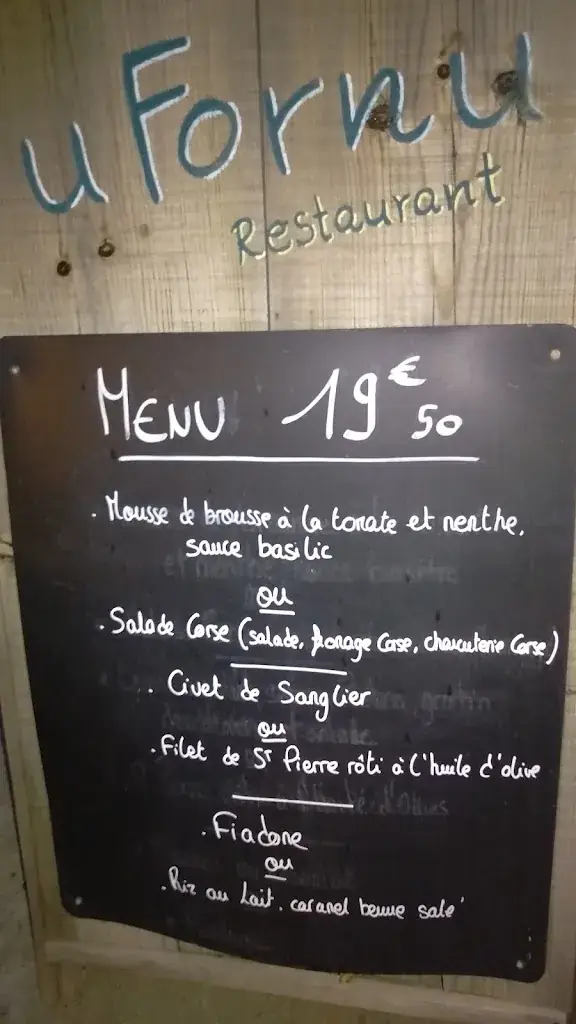 u Fornu
Restaurant
MENU 19€50
. Mousse de brousse à la tomate et menthe,
sauce basilic
ou
. Salade Corse (salade, fromage Corse, charcuterie Corse)
. Civet de Sanglier
ou
. Filet de St Pierre rôti à l'huile d'olive
. Fiadone
ou
. Riz au Lait, caramel beurre salé